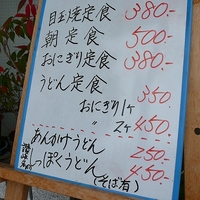 目玉焼定食 380.-
朝定食 500.-
おにぎり定食 380.-
うどん定食
おにぎり1ヶ 350.
〃 2ヶ 450.
あんかけうどん 250.-
しっぽくうどん 450.-
(そば有)